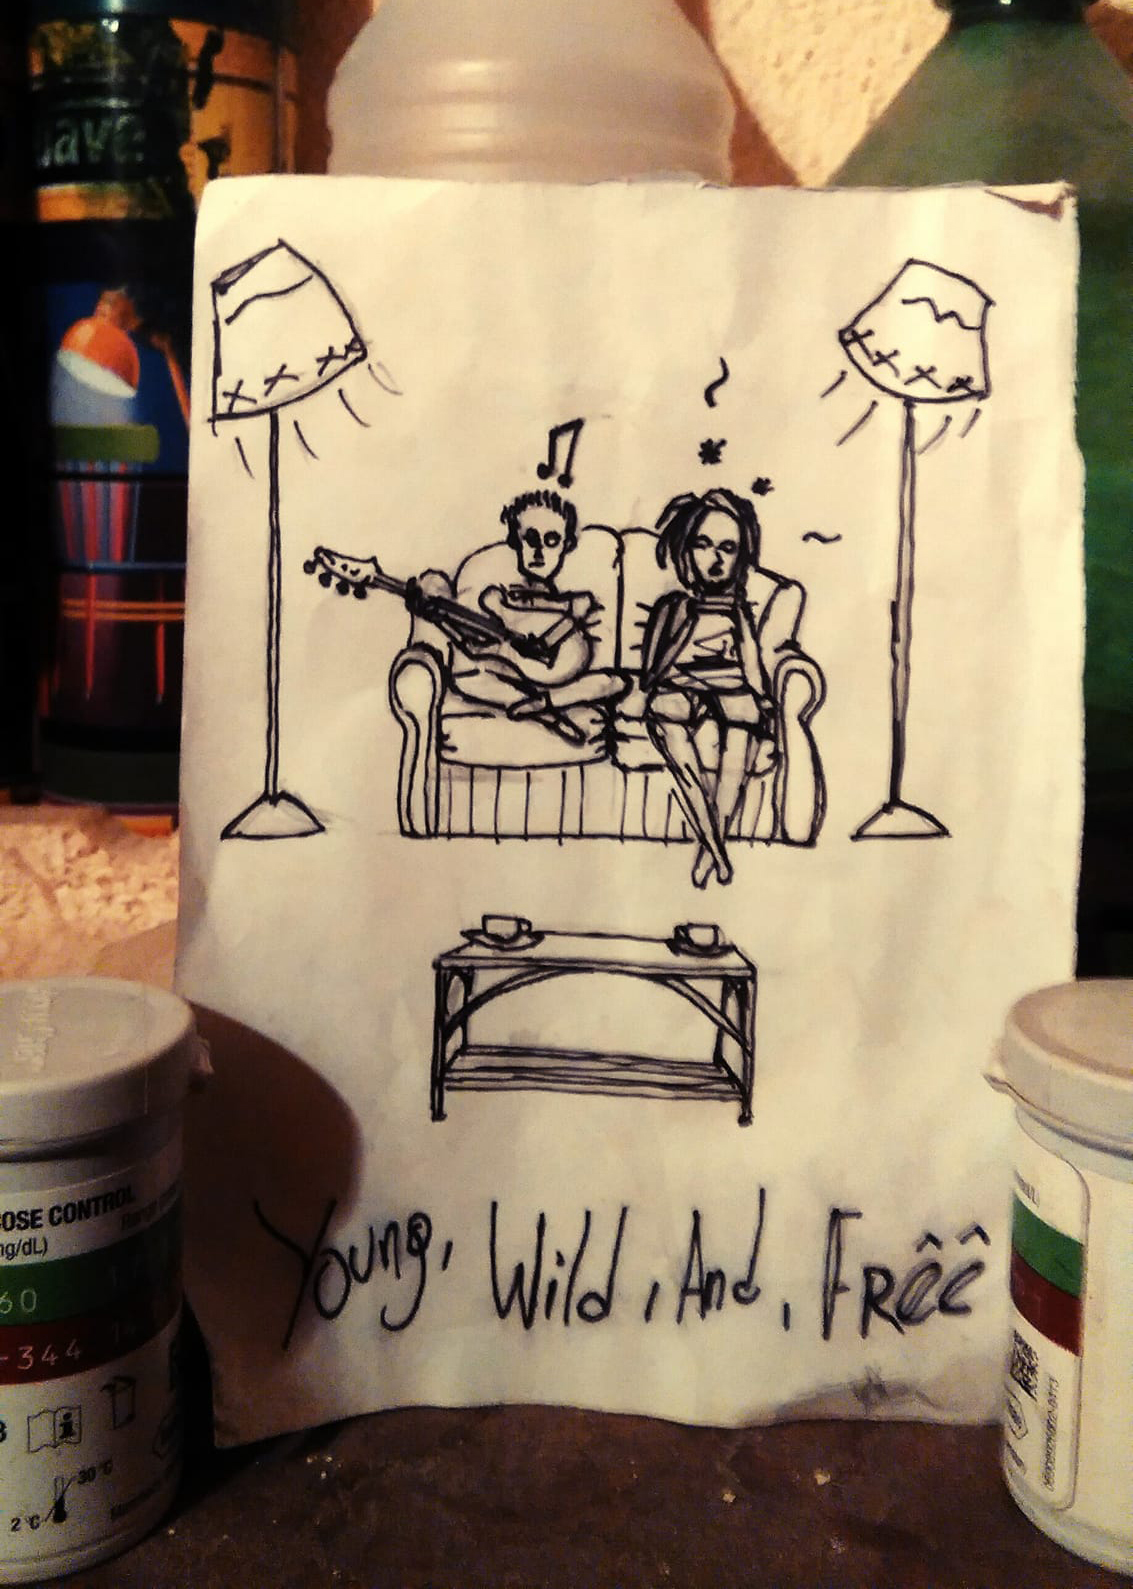 Young, Wild, And, Frêê
OSE CONTROL
ng/dL)
60
-344
30°C
2°C